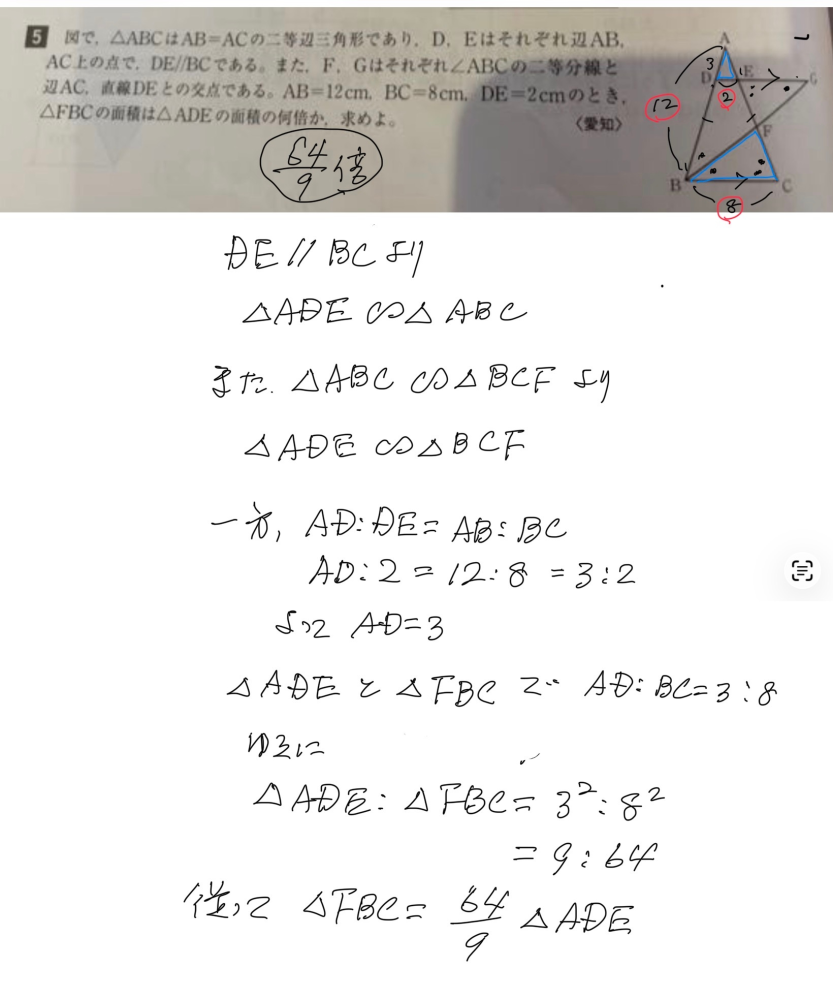 5 図で，△ABCはAB＝ACの二等辺三角形であり，D，Eはそれぞれ辺AB，
AC上の点で，DE//BCである。また，F，Gはそれぞれ∠ABCの二等分線と
辺AC，直線DEとの交点である。AB＝12cm，BC＝8cm，DE＝2cmのとき，
△FBCの面積は△ADEの面積の何倍か，求めよ。
〈愛知〉
64/9 倍
A
3
D
E
G
2
12
F
B
C
8
DE // BC より
△ADE ∽△ ABC
また. △ABC ∽△ BCF より
△ADE ∽△BCF
一方, AD:DE= AB:BC
AD:2 = 12:8 = 3:2
よって AD=3
△ADE と △FBC で AD:BC=3:8
ゆえに
△ADE: △FBC= 3²:8²
= 9:64
従って △FBC= 64/9 △ADE